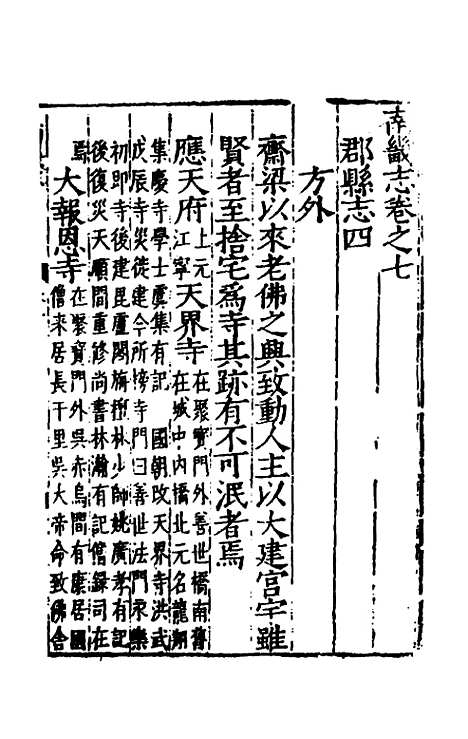 南畿志卷之七
郡縣志四
方外
齋梁以來老佛之興致動人主以大建宮宇雖
賢者至捨宅爲寺其跡有不可泯者焉
應天府上元江寧天界寺在聚寶門外善世橋南舊在城中內橋北元名龍翔
集慶寺學士虞集有記國朝改天界寺洪武
戊辰寺災徙建今所榜寺門曰善世法門永樂
初即寺後建毘盧閣旃檀林少師姚廣孝有記
後復災天順間重修尚書林瀚有記僧錄司在
焉大報恩寺在聚寶門外吳赤烏間有康居國僧來居長干里吳大帝命致佛舍